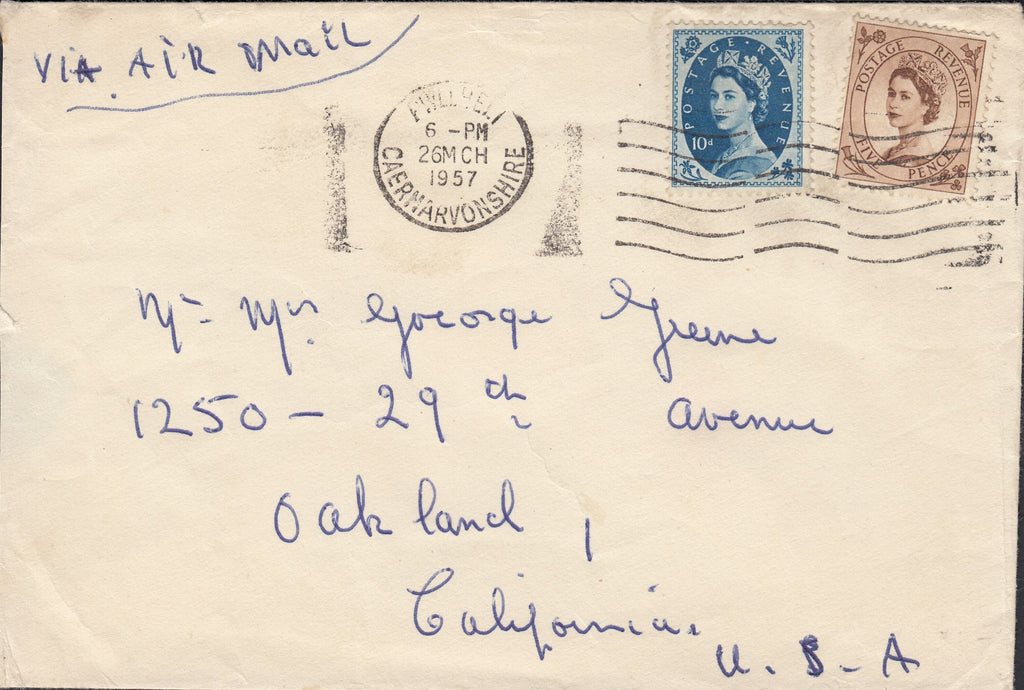 VIA AIR Mail
PWLLHELI
6 - PM
26 MCH
1957
CAERNARVONSHIRE
POSTAGE REVENUE
10d
POSTAGE REVENUE
FIVE PENCE
Mr- Mrs. Goeorge Greene
1250 - 29th Avenue
Oakland,
California.
U. S - A